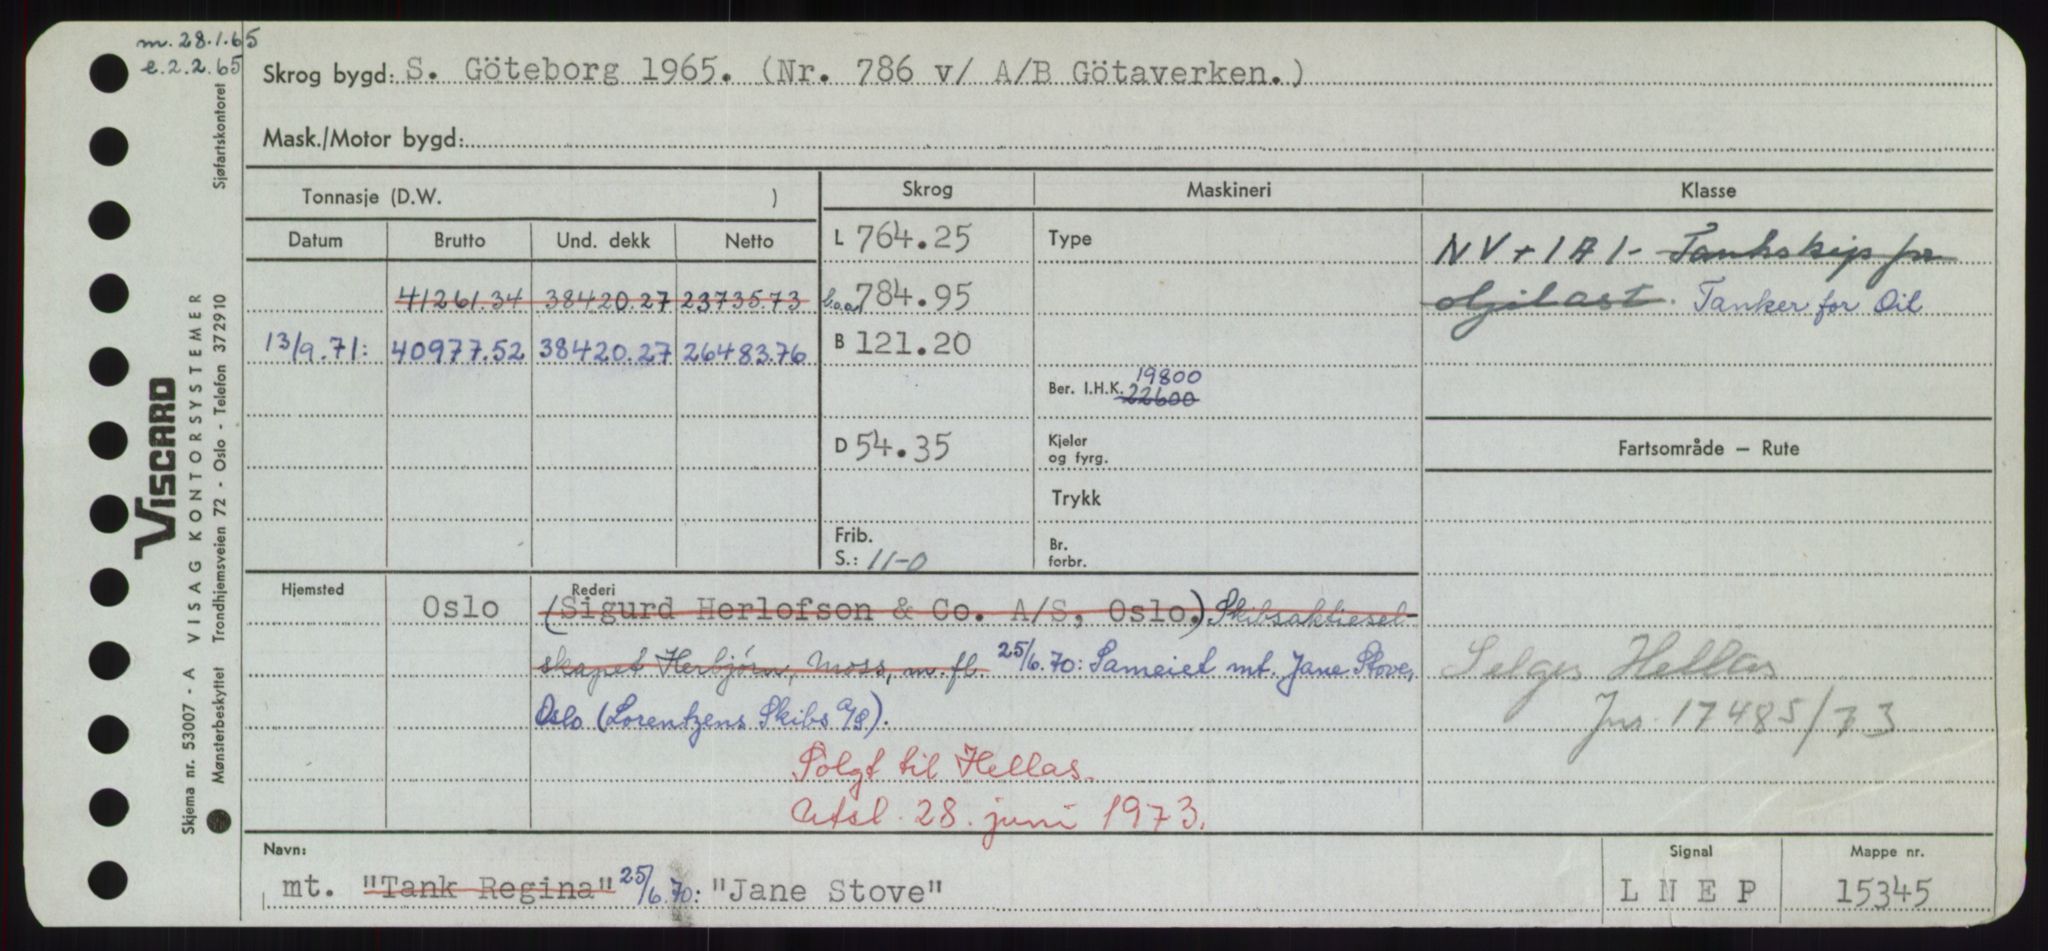 m. 28.1.65
e. 2.2.65
Skrog bygd: S. Göteborg 1965. (Nr. 786 v/ A/B Götaverken.)
Mask./Motor bygd:
Tonnasje (D.W. )
Skrog
Maskineri
Klasse
Datum Brutto Und. dekk Netto
41261.34 38420.27 23735.73
13/9.71: 40977.52 38420.27 26483.76
L 764.25
b.o.a. 784.95
B 121.20
D 54.35
Frib.
S.: 11-0
Type
Ber. I.H.K. 22600 19800
Kjeler
og fyrg.
Trykk
Br.
forbr.
NV + 1A1- Tankskip for
oljelast. Tanker for Oil
Fartsområde – Rute
Selges Hellas
Jnr. 17485/73
Hjemsted
Oslo
Rederi
(Sigurd Herlofson & Co. A/S, Oslo.) Skibsaktiesel-
skapet Herbjørn, Moss, m.fl. 25/6.70: Sameiet mt. Jane Stove,
Oslo (Lorentzens Skibs A/S).
Solgt til Hellas.
Utsl. 28. juni 1973.
Navn:
mt. "Tank Regina" 25/6.70: "Jane Stove"
Signal
L N E P
Mappe nr.
15345
VISCARD
Skjema nr. 53007 - A VISAG KONTORSYSTEMER
Mønsterbeskyttet Trondhjemsveien 72 - Oslo - Telefon 372910 Sjøfartskontoret